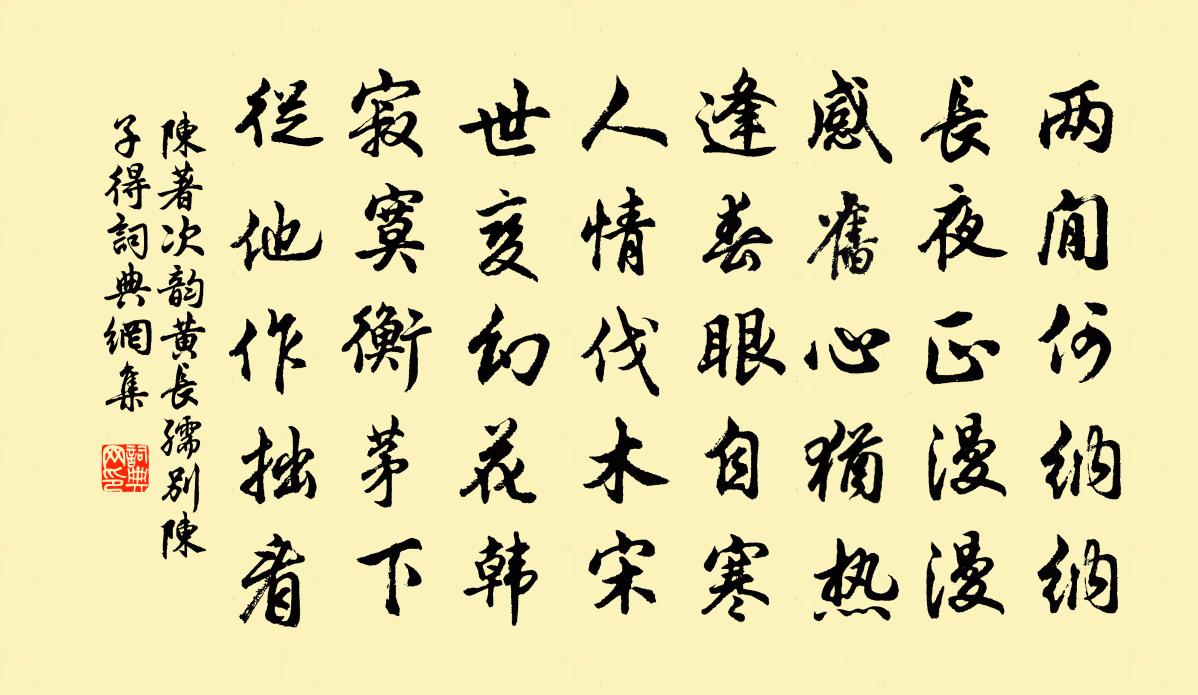 两间何纳纳
長夜正漫漫
感舊心猶热
逢春眼自寒
人情伐木宋
世变幻花韩
寂寞衡茅下
從他作拙看
陳著次韵黄長孺别陳
子得詞典網集
詞典
网印